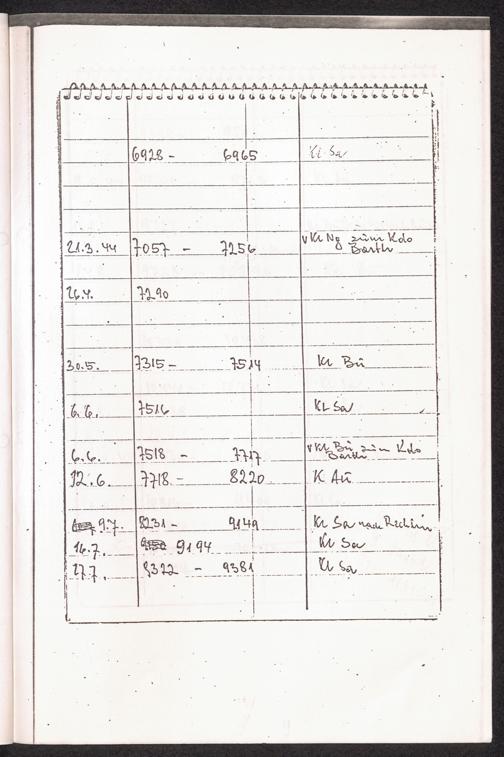 6928 - 6965 Kl Sa
21.3.44 7057 - 7256 v Kl Ng zum Kdo
Barth
26.4. 7290
30.5. 7315 - 7514 Kl Bu
6.6. 7516 KL Sa
6.6. 7518 - 7717 v Kl Bu zum Kdo
Barth
12.6. 7718 - 8220 K Au
9.7. 8231 - 9149 Kl Sa nach Rechlin
14.7. 9194 Kl Sa
27.7. 9322 - 9381 Kl Sa